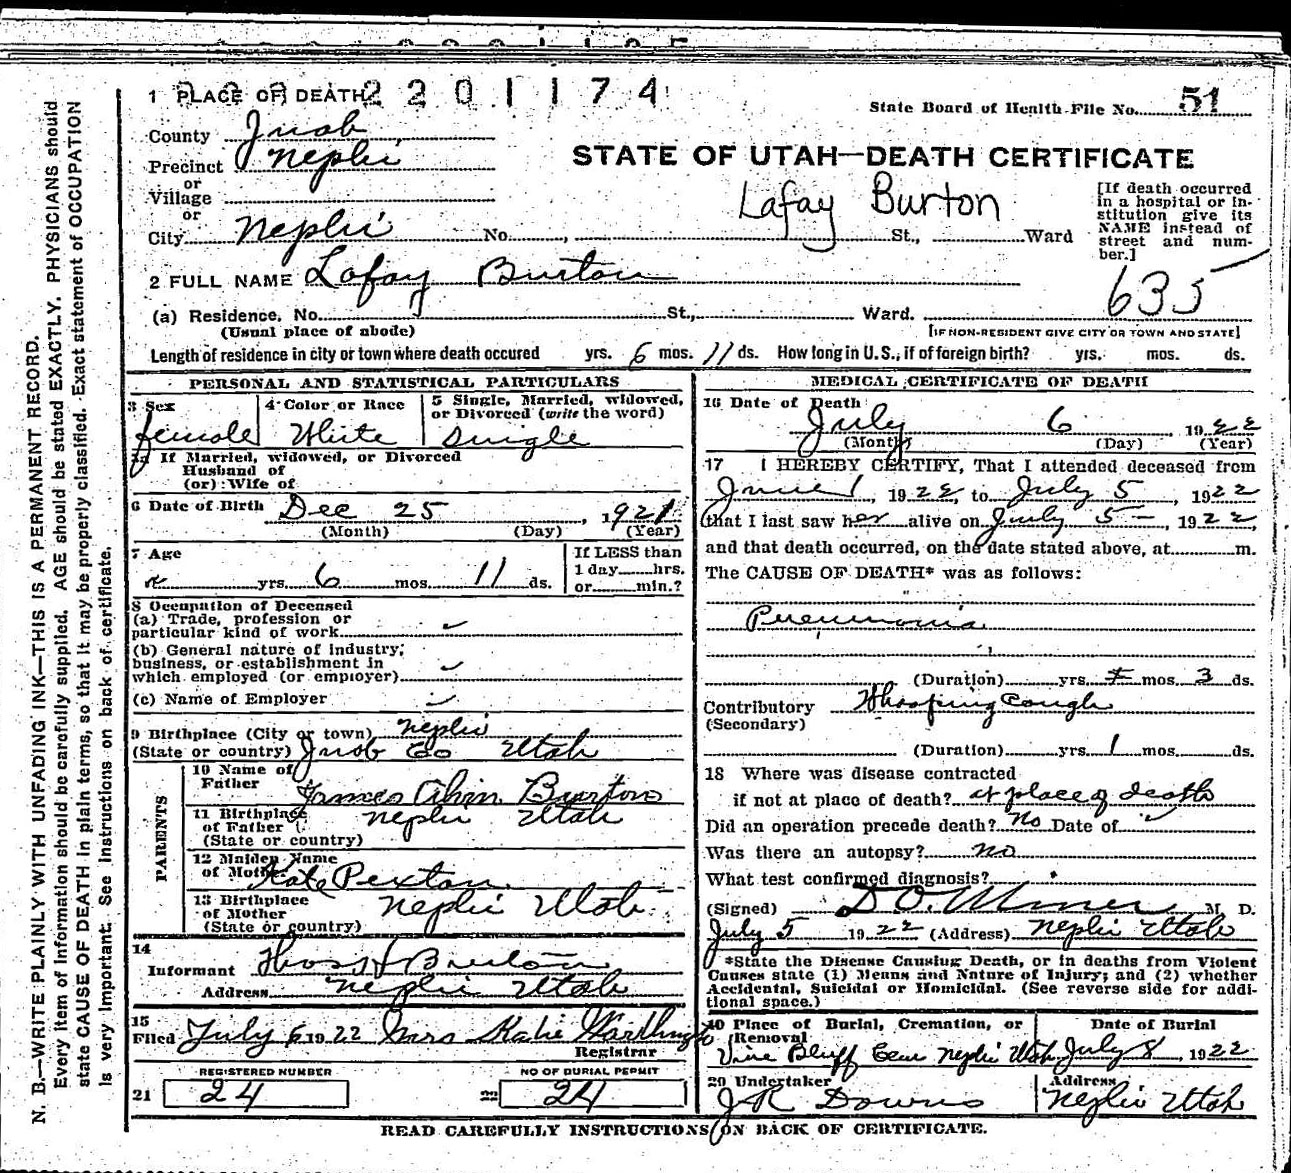 2201174
1 PLACE OF DEATH
State Board of Health File No. 51
County Juab
Precinct Nephi
or
Village
or
City Nephi No. , St., Ward
STATE OF UTAH—DEATH CERTIFICATE
Lafay Burton
[If death occurred
in a hospital or in-
stitution give its
NAME instead of
street and num-
ber.]
2 FULL NAME Lafay Burton
635
(a) Residence, No. St., Ward.
(Usual place of abode)
[IF NON-RESIDENT GIVE CITY OR TOWN AND STATE]
Length of residence in city or town where death occured yrs. 6 mos. 11 ds. How long in U.S., if of foreign birth? yrs. mos. ds.
PERSONAL AND STATISTICAL PARTICULARS
3 Sex female
4 Color or Race White
5 Single, Married, widowed,
or Divorced (write the word)
Single
If Married, widowed, or Divorced
Husband of
(or) Wife of
6 Date of Birth Dec 25, 1921
(Month) (Day) (Year)
7 Age
yrs. 6 mos. 11 ds.
If LESS than
1 day hrs.
or min.?
8 Occupation of Deceased
(a) Trade, profession or
particular kind of work
(b) General nature of industry,
business, or establishment in
which employed (or employer)
(c) Name of Employer
9 Birthplace (City or town) Nephi
(State or country) Juab Co Utah
PARENTS
10 Name of
Father James Burton
11 Birthplace
of Father Nephi Utah
(State or country)
12 Maiden Name
of Mother Kate Pexton
13 Birthplace
of Mother Nephi Utah
(State or country)
14
Informant Thos H Burton
Address Nephi Utah
15
Filed July 6 1922 Mrs Katie
Registrar
REGISTERED NUMBER
21 24
NO OF BURIAL PERMIT
22 24
MEDICAL CERTIFICATE OF DEATH
16 Date of Death
July 6, 1922
(Month) (Day) (Year)
17 I HEREBY CERTIFY, That I attended deceased from
June 1, 1922, to July 5, 1922
that I last saw her alive on July 5 -, 1922,
and that death occurred, on the date stated above, at m.
The CAUSE OF DEATH* was as follows:
Pneumonia
(Duration) yrs. mos. 3 ds.
Contributory Whooping Cough
(Secondary)
(Duration) yrs. 1 mos. ds.
18 Where was disease contracted
if not at place of death? at place of death
Did an operation precede death? no Date of
Was there an autopsy? no
What test confirmed diagnosis?
(Signed) D O. Miner M. D.
July 5 1922 (Address) Nephi Utah
*State the Disease Causing Death, or in deaths from Violent
Causes state (1) Means and Nature of Injury; and (2) whether
Accidental, Suicidal or Homicidal. (See reverse side for addi-
tional space.)
19 Place of Burial, Cremation, or
Removal
Vine Bluff Cem Nephi Utah
Date of Burial
July 8, 1922
20 Undertaker
J R Downs
Address
Nephi Utah
READ CAREFULLY INSTRUCTIONS ON BACK OF CERTIFICATE.
N. B.—WRITE PLAINLY WITH UNFADING INK—THIS IS A PERMANENT RECORD.
Every item of information should be carefully supplied. AGE should be stated EXACTLY. PHYSICIANS should
state CAUSE OF DEATH in plain terms, so that it may be properly classified. Exact statement of OCCUPATION
is very important. See instructions on back of certificate.